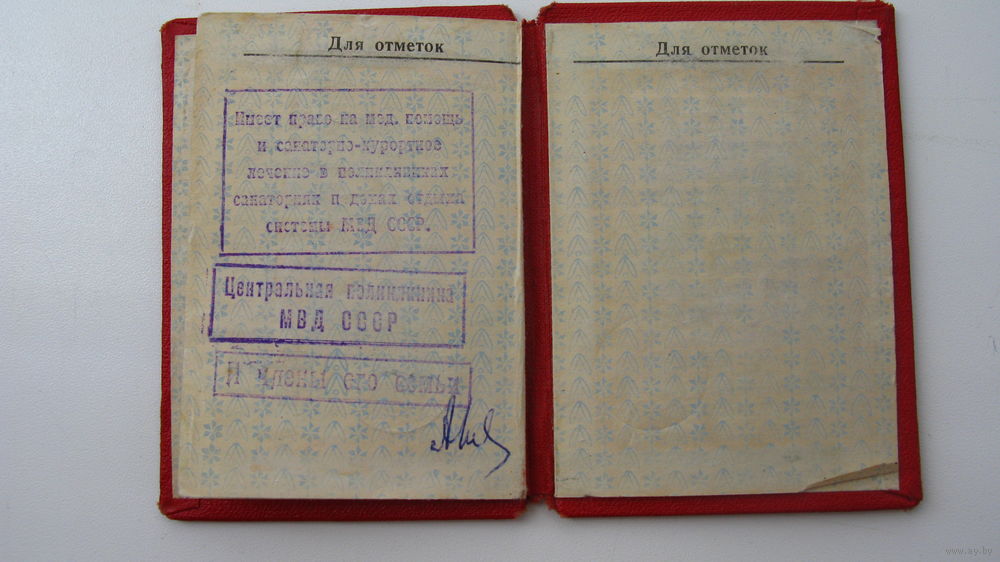 Для отметок
Имеет право на мед. помощь
и санаторно-курортное
лечение в поликлиниках
санаториях и домах отдыха
системы МВД СССР.
Центральная поликлиника
МВД СССР
И члены его семьи
Для отметок
www.ay.by